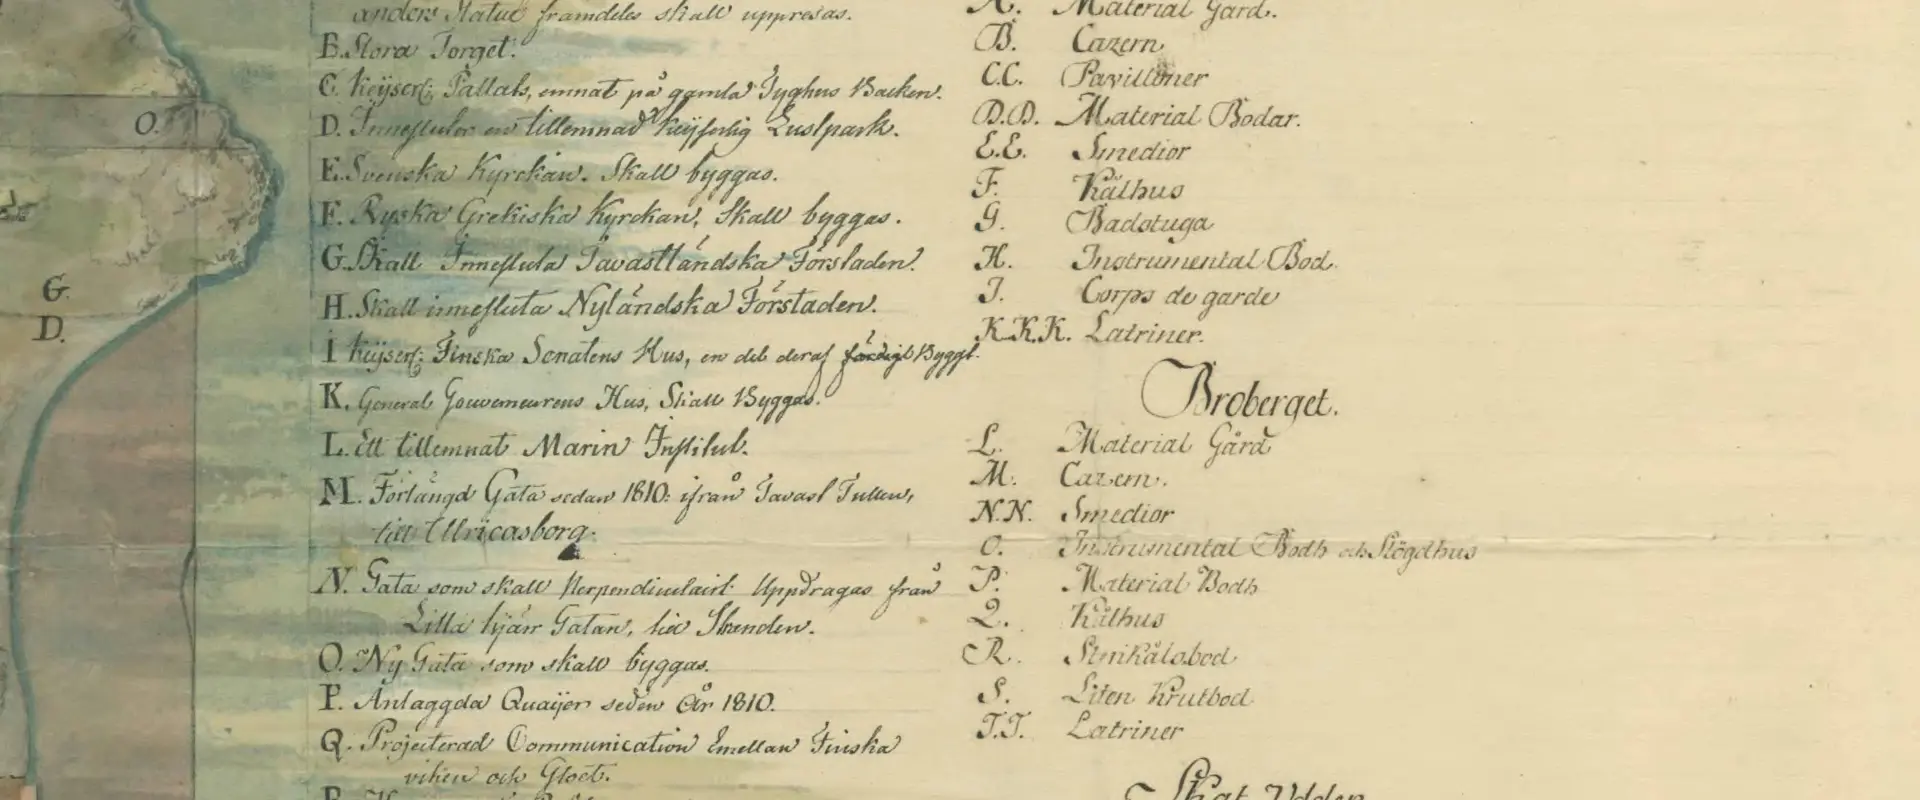 anders Statue framdeles skall uppresas.
B. Stora Torget.
C. Keÿserl: Pallats, emnat på gamla Tyghus Backen.
D. Innesluter en tillemnad Keÿserlig Lustpark.
E. Svenska Kyrckan. Skall byggas.
F. Ryska Grekiska Kyrckan, Skall byggas.
G. Skall Innesluta Tavastländska Förstaden.
H. Skall innesluta Nyländska Förstaden.
I Keÿserl: Finska Senatens Hus, en del deraf färdigt Byggt.
K. General Gouverneurens Hus, Skall Byggas.
L. Ett tillemnat Marin Institut.
M. Förlängd Gata sedan 1810: ifrån Tavast Tullen,
till Ullricasborg.
N. Gata som skall Perpendiculairt Uppdragas från
Lilla kjärr Gatan, till Stranden.
O. Ny Gata som skall byggas.
P. Anlaggda Quaijer seden År 1810.
Q. Projecterad Communication Emellan Finska
viken och Gloet.
R.
A. Material Gård.
B. Cazern
C.C. Pavilloner
D.D. Material Bodar.
E.E. Smedior
F. Kålhus
G. Badstuga
H. Instrumental Bod.
I. Corps de garde
K.K.K. Latriner.
Broberget.
L. Material Gård
M. Cazern.
N.N. Smedior
O. Instrumental Bodh och Slögdhus
P. Material Bodh
Q. Kålhus
R. Stenkålsbod
S. Liten Krutbod
T.T. Latriner
Skat Udden
O.
G.
D.